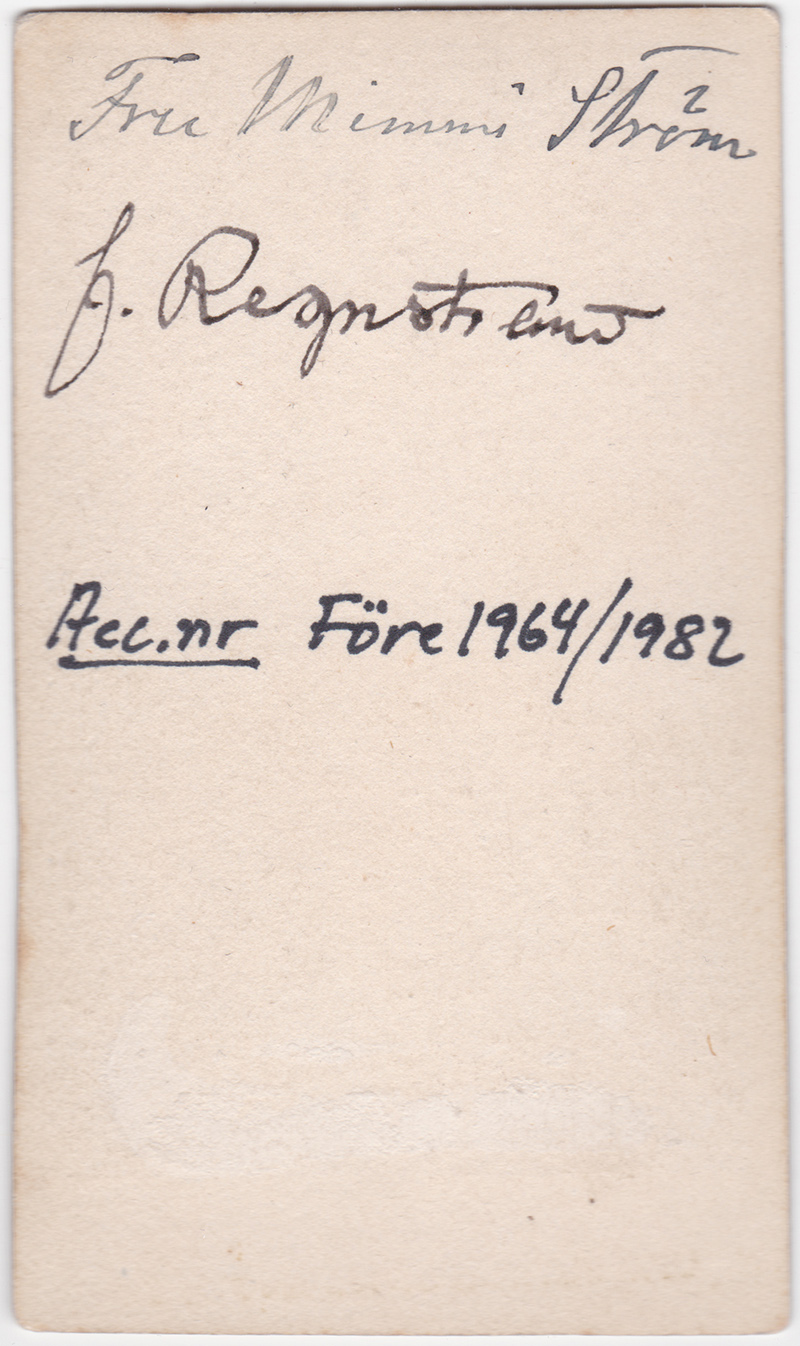 Fru Mimmi Ström
f. Regnstrand
Acc.nr Före 1964/1982